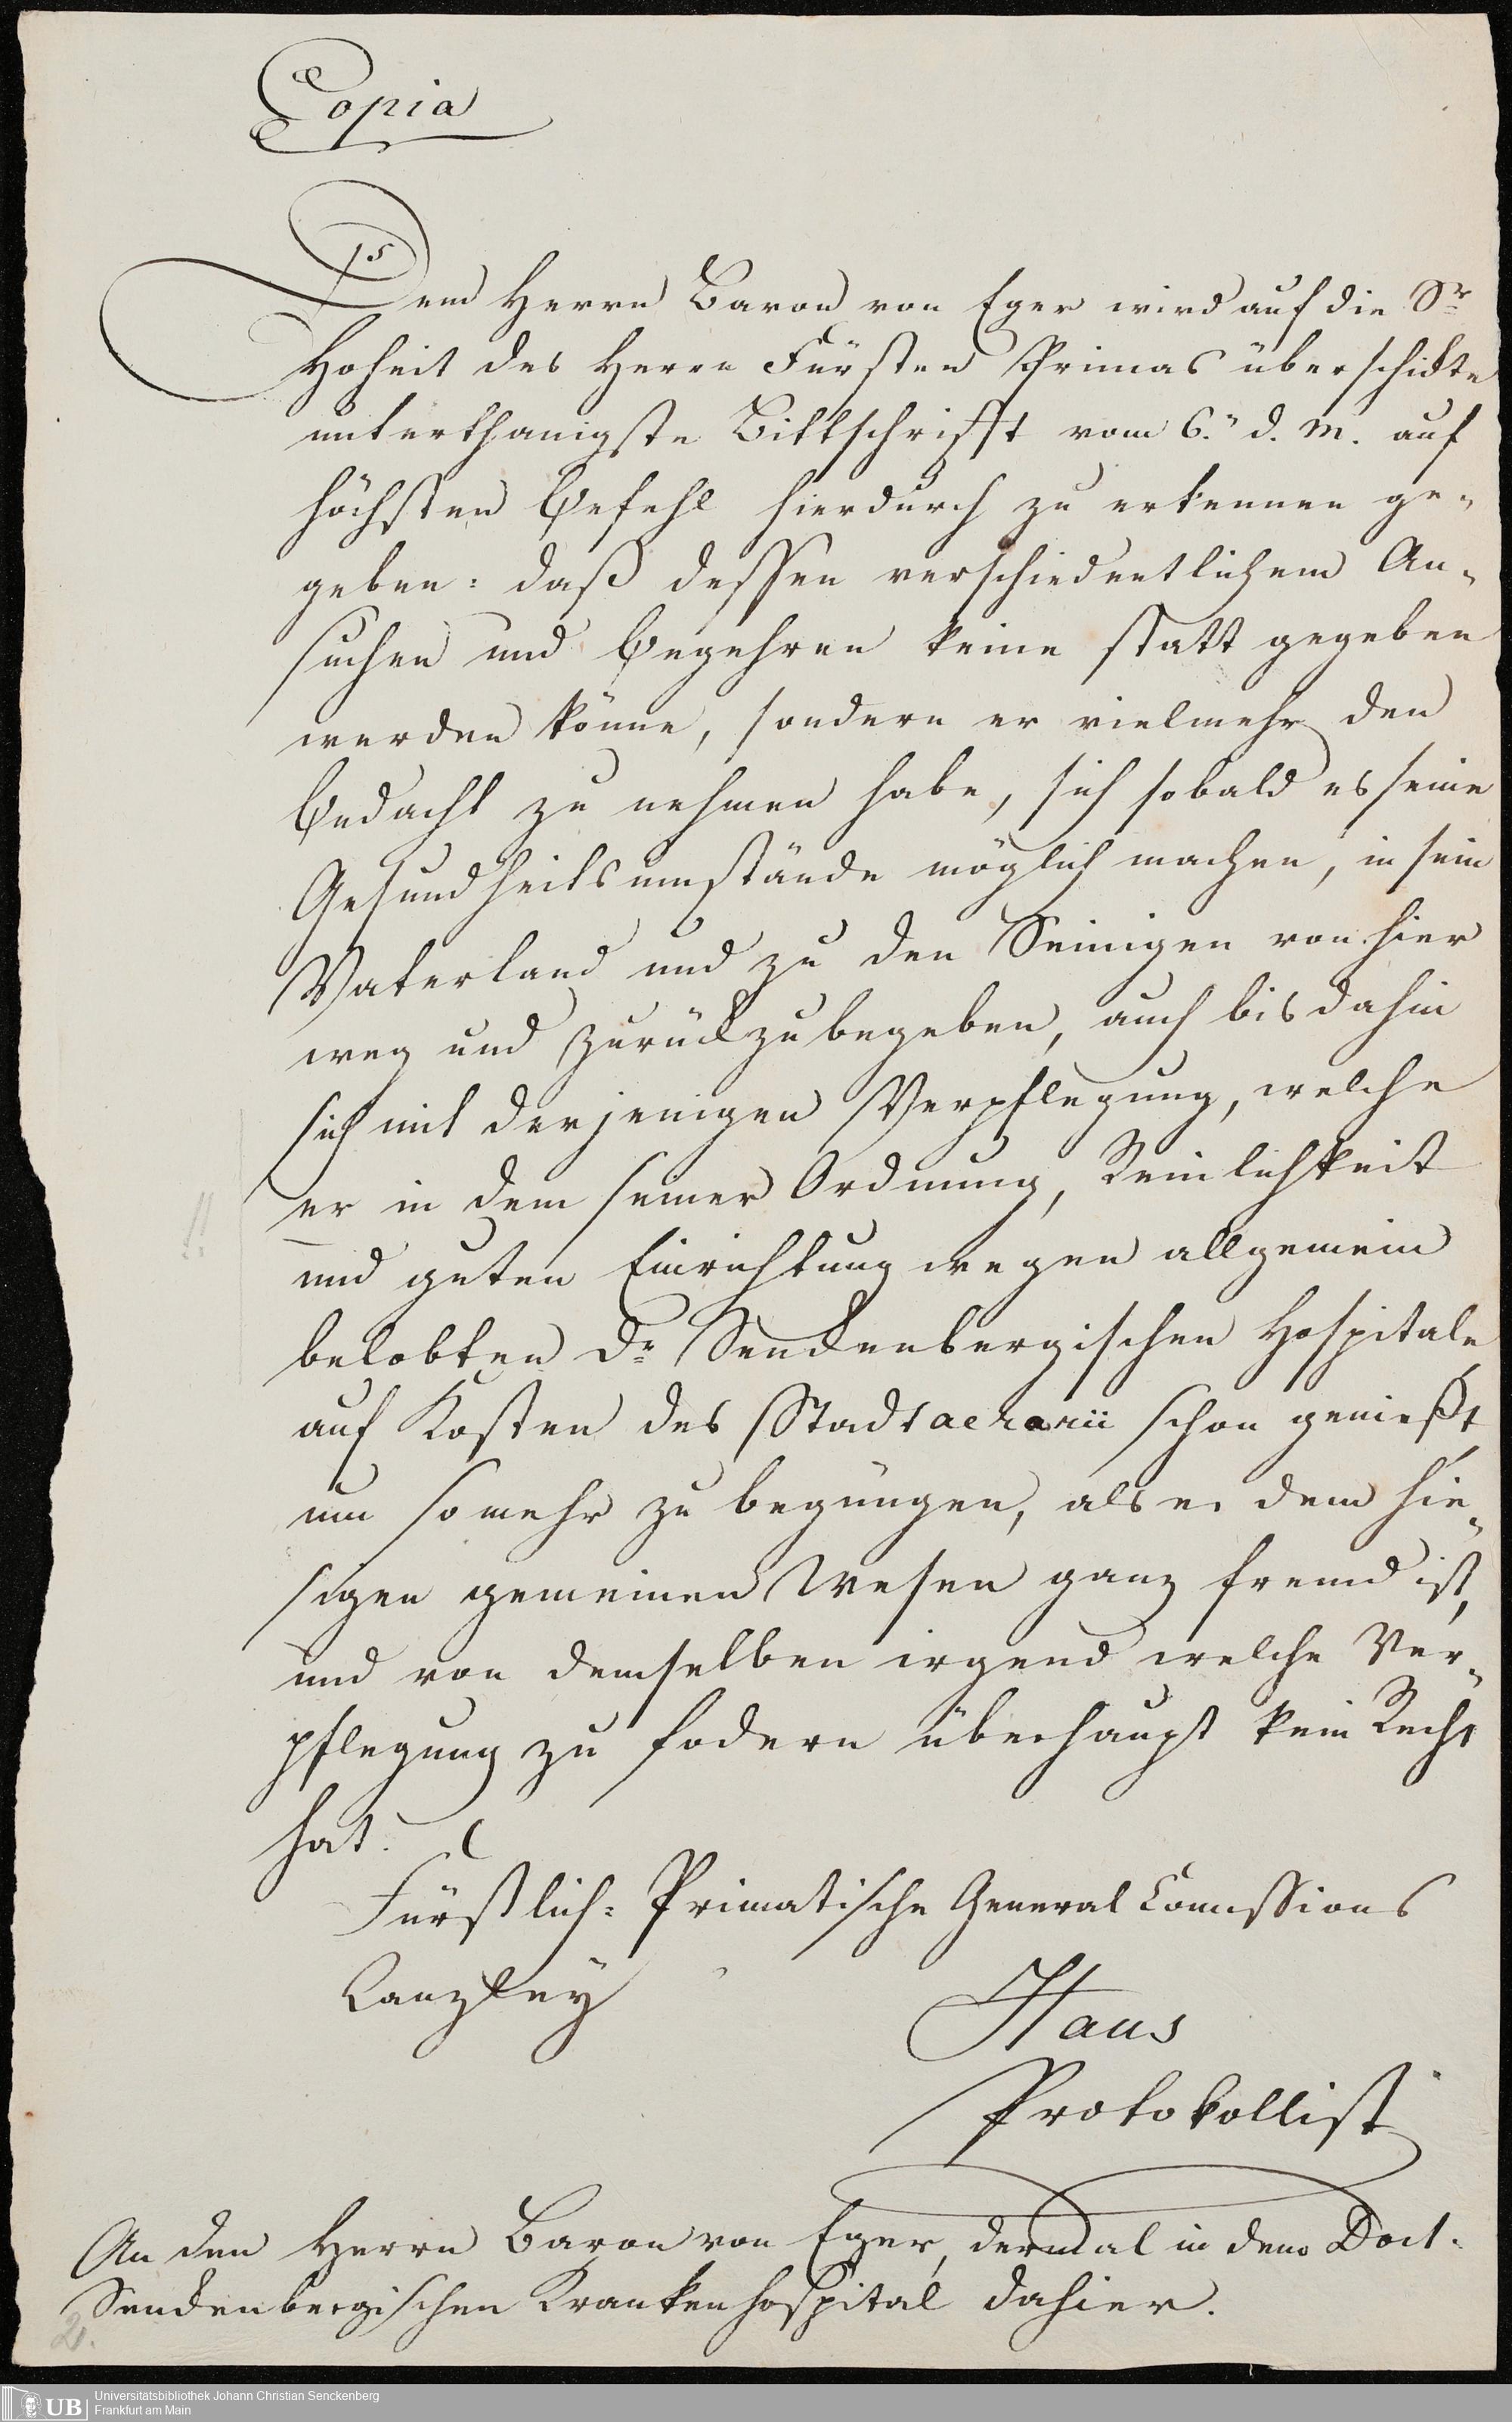 Copia
Dem Herrn Baron von Eger wird auf die Sr
Hoheit des Herrn Fürsten Primas überschickte
unterthanigste Bittschrifft vom 6.n d. M. auf
höchsten Befehl hierdurch zu erkennen ge-
geben: daß dessen verschiedentlichem An-
suchen und Begehren keine statt gegeben
werden könne, sondern er vielmehr den
Bedacht zu nehmen habe, sich sobald es seine
Gesundheitsumstände möglich machen, in sein
Vaterland und zu den Seinigen von hier
weg und zurückzubegeben, auch bis dahin
sich mit derjenigen Verpflegung, welche
er in dem seiner Ordnung, Reinlichkeit
und guten Einrichtung wegen allgemein
belobten Dr Senckenbergischen Hospitale
auf Kosten des Stadtaerarii schon genießt,
um so mehr zu begnügen, als er dem hie-
sigen gemeinen Wesen ganz fremd ist,
und von demselben irgend welche Ver-
pflegung zu fodern überhaupt kein Recht
hat.
Fürstlich-Primatische General Comissions
Canzley
Haus
Protokollist
An den Herrn Baron von Eger, dermal in dem Doct.
Senckenbergischen Krankenhospital dahier.
!!
2.
UB
Universitätsbibliothek Johann Christian Senckenberg
Frankfurt am Main